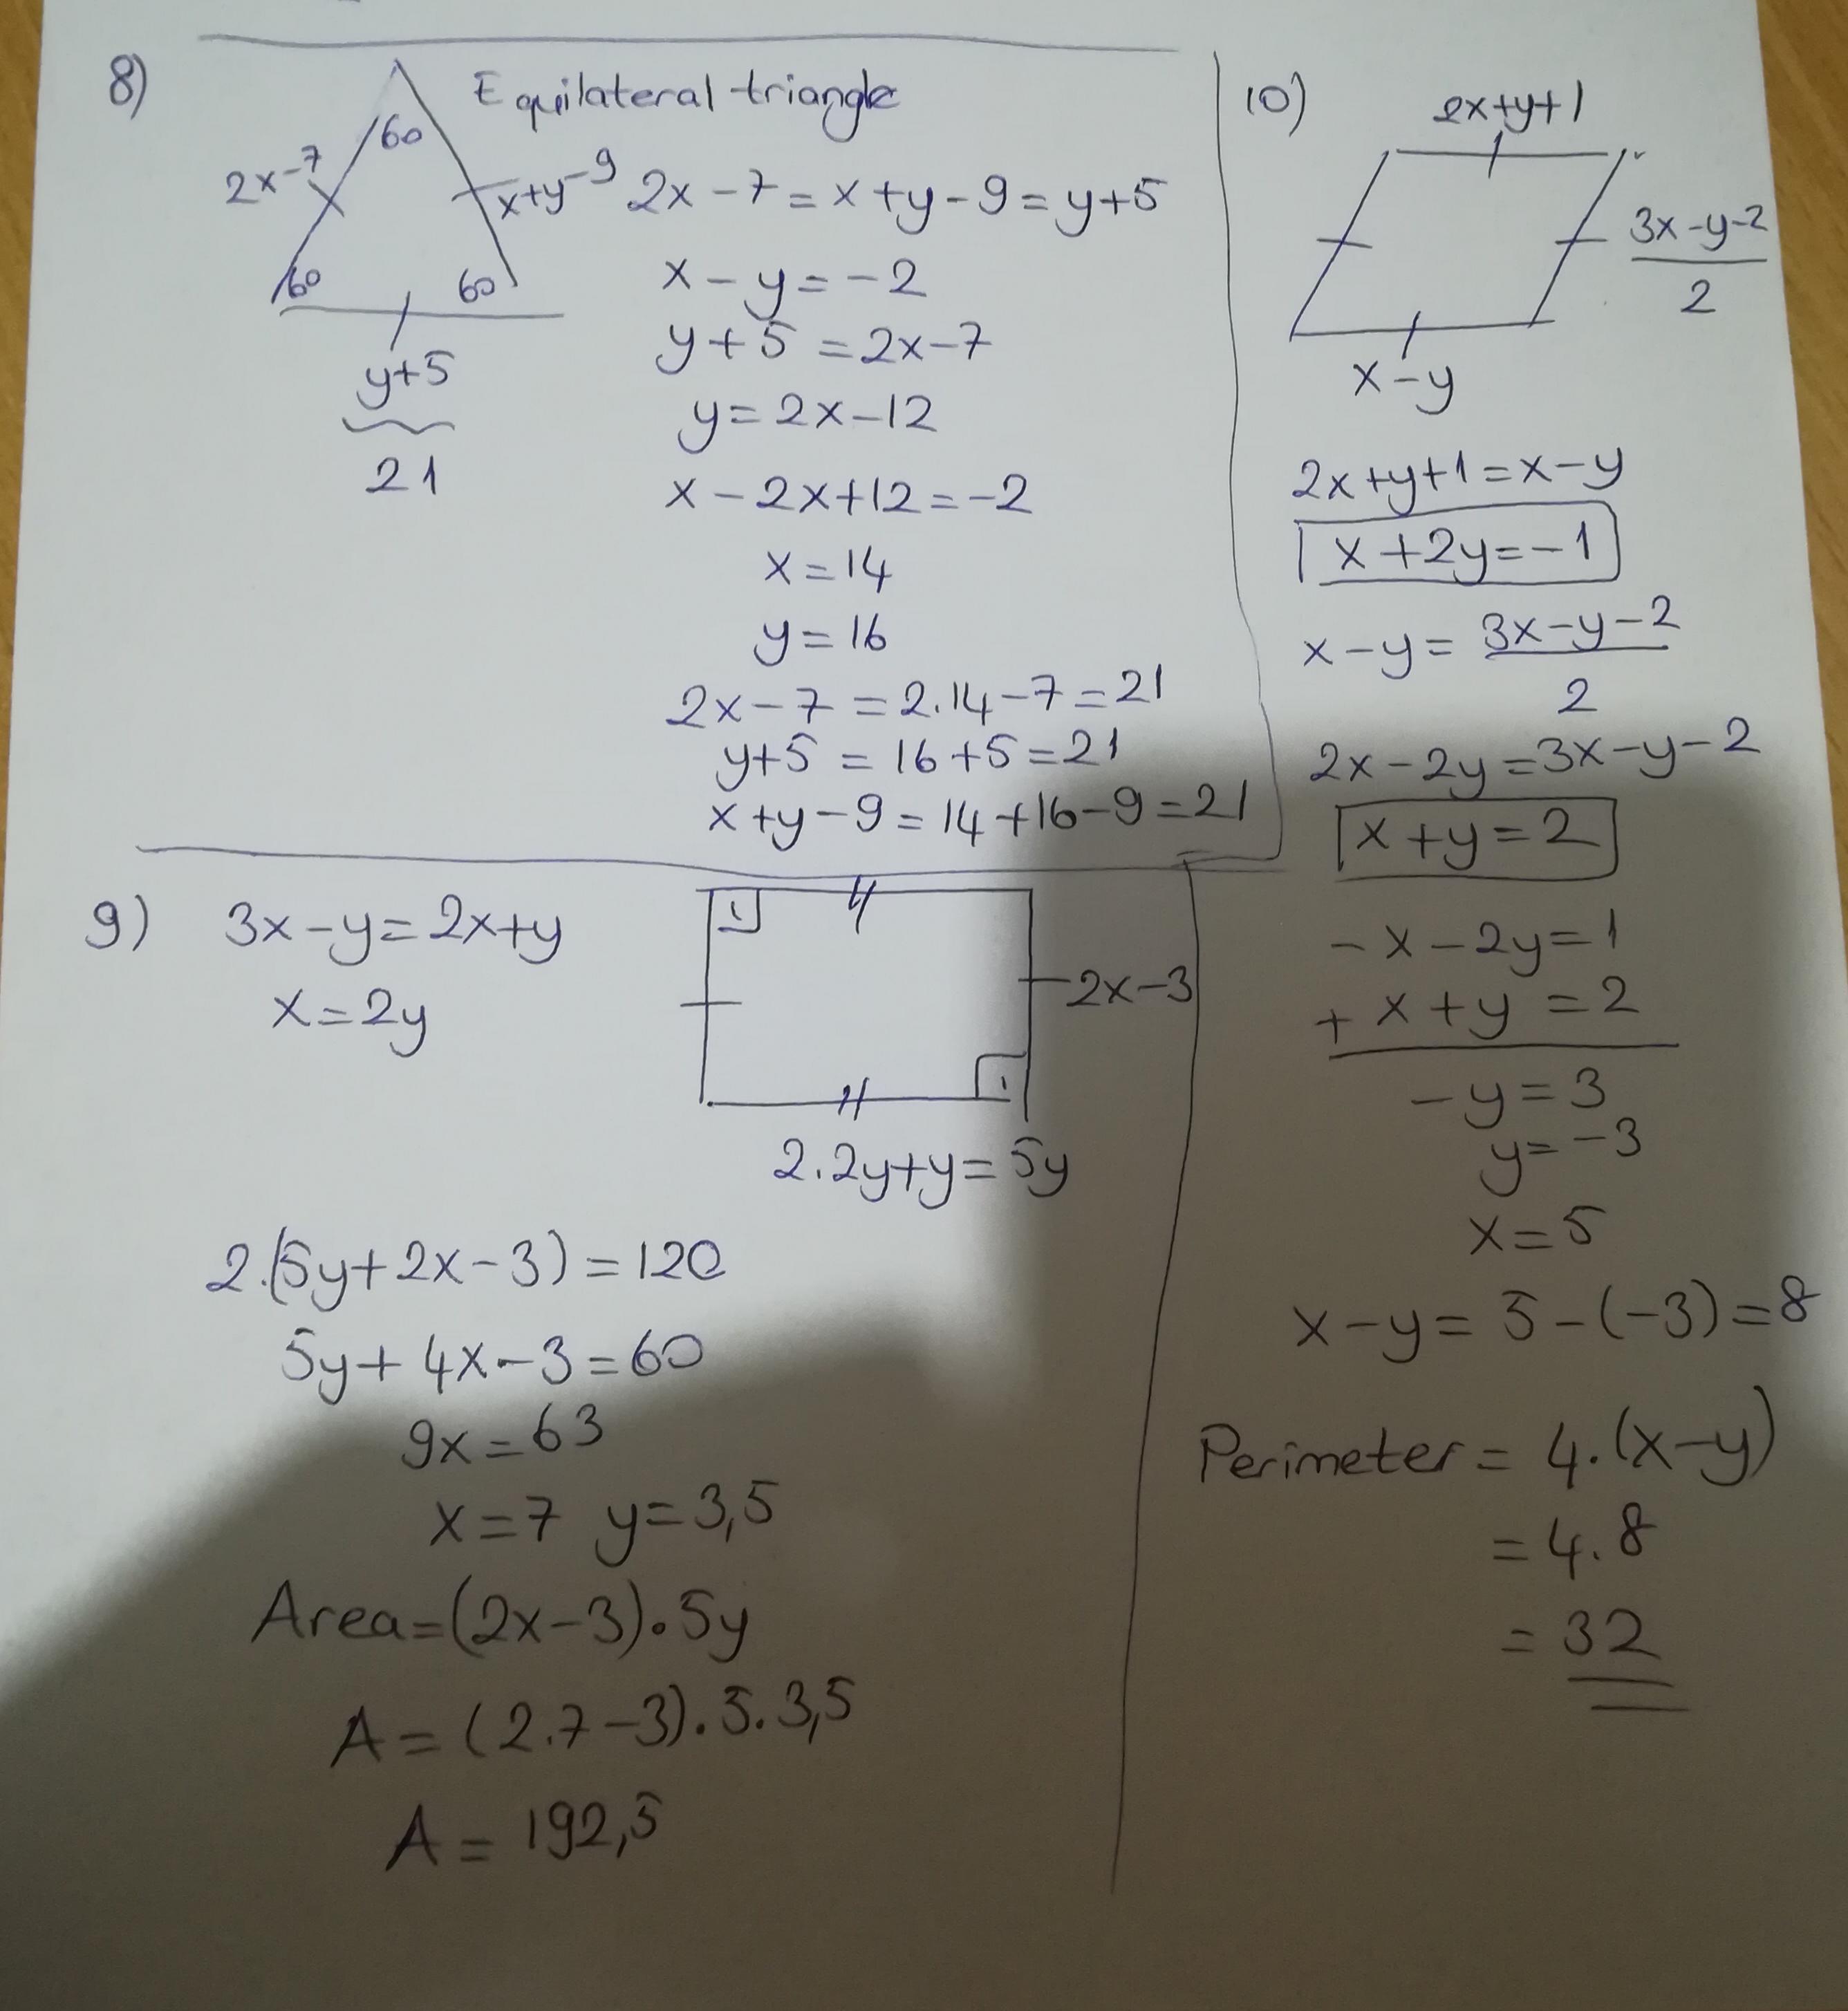 8)
Equilateral triangle
60
2x-7
x+y-9
60
60
y+5
21
2x-7=x+y-9=y+5
x-y=-2
y+5=2x-7
y=2x-12
x-2x+12=-2
x=14
y=16
2x-7=2.14-7=21
y+5=16+5=21
x+y-9=14+16-9=21
9)
3x-y=2x+y
x=2y
2x-3
2.2y+y=5y
2.(5y+2x-3)=120
5y+4x-3=60
9x=63
x=7 y=3,5
Area=(2x-3).5y
A=(2.7-3).5.3,5
A=192,5
10)
2x+y+1
3x-y-2
2
x-y
2x+y+1=x-y
x+2y=-1
x-y=3x-y-2
2
2x-2y=3x-y-2
x+y=2
-x-2y=1
+ x+y=2
-y=3
y=-3
x=5
x-y=5-(-3)=8
Perimeter=4.(x-y)
=4.8
=32